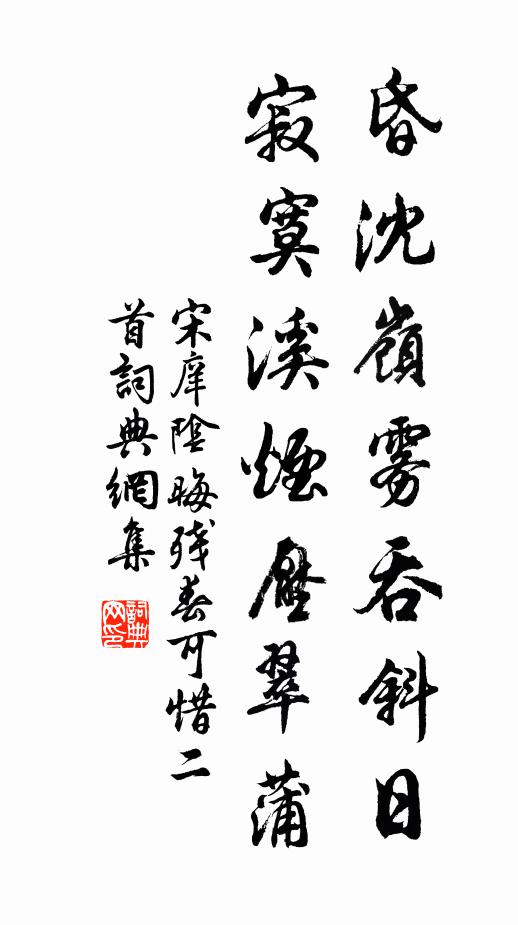 昏沈嶺雾吞斜日
寂寞溪煙壓翠蒲
宋庠陰晦残春可惜二
首詞典網集
詞典網印